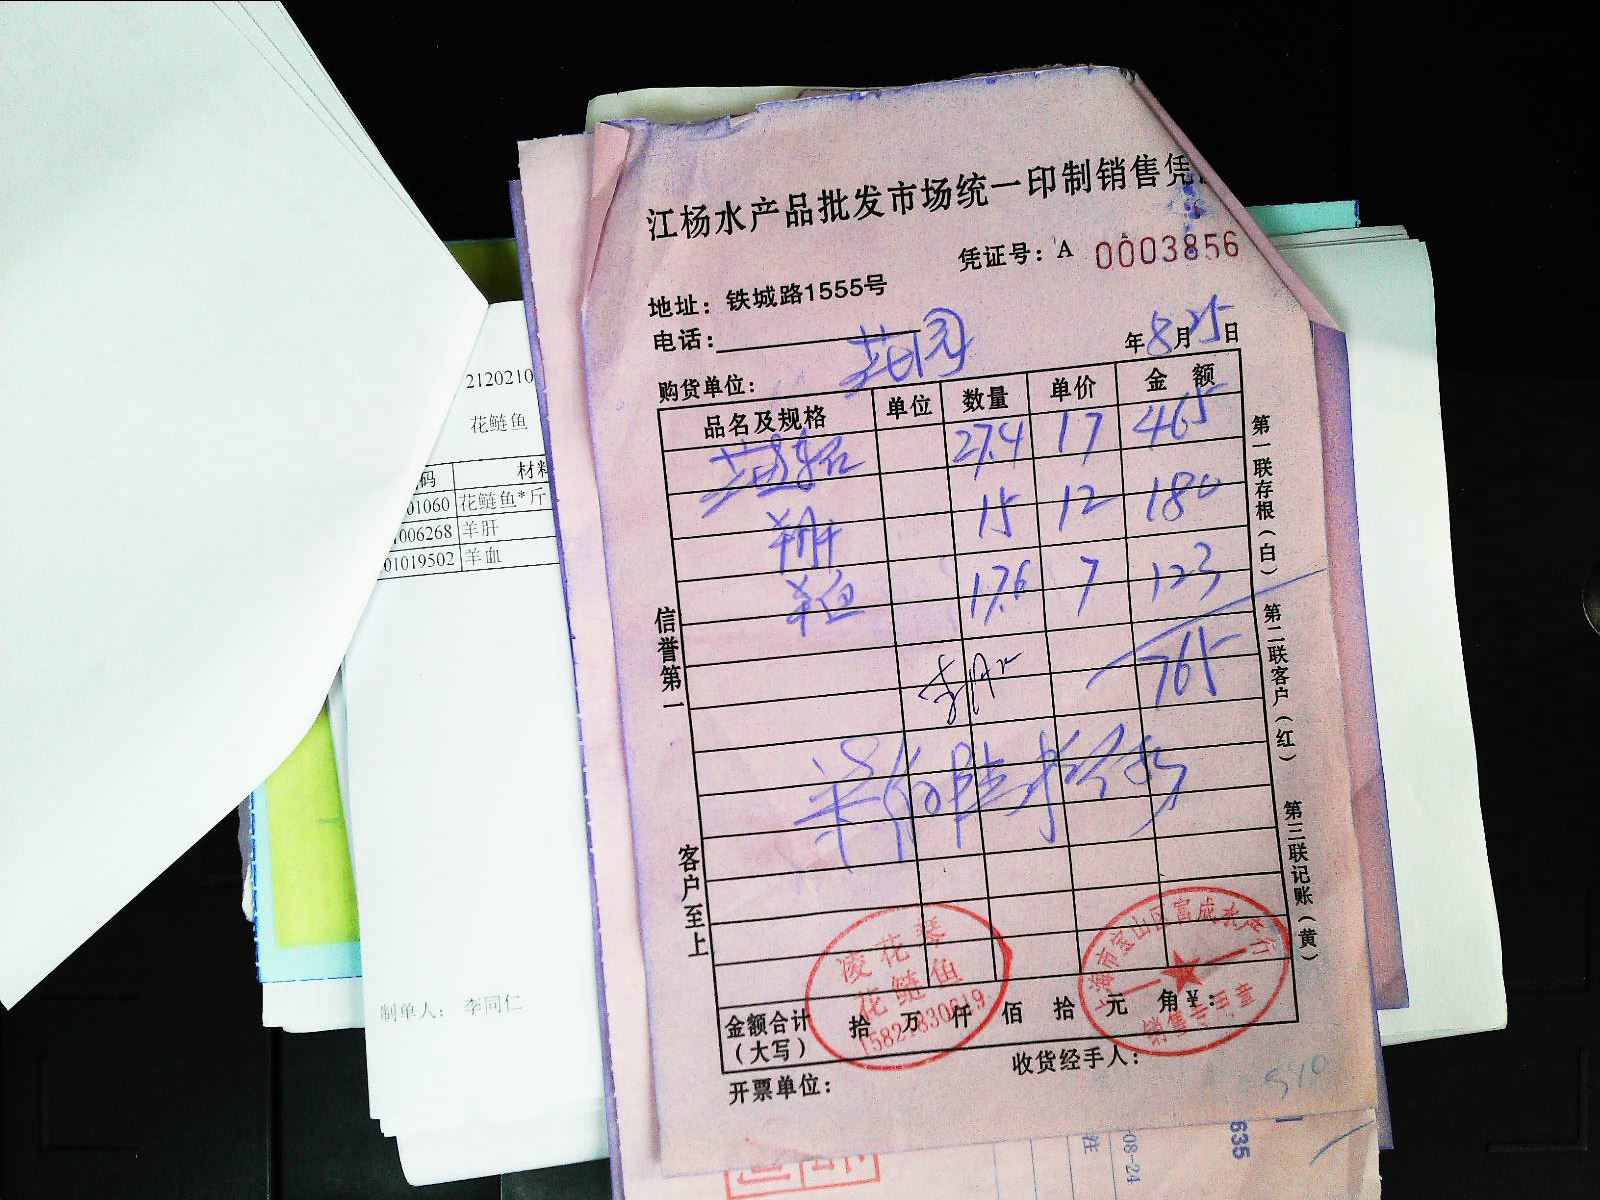 江杨水产品批发市场统一印制销售凭
凭证号：A 0003856
地址：铁城路1555号
电话：
年8月25日
购货单位：花园
品名及规格 单位 数量 单价 金额
27.4 17 465
羊肝 15 12 180
羊血 17.6 7 123
765
柒佰陆拾伍
金额合计（大写） 拾 万 仟 佰 拾 元 角 ¥：
开票单位：
收货经手人：
信誉第一
客户至上
第一联存根（白）
第二联客户（红）
第三联记账（黄）
凌花琴
花鲢鱼
上海市宝山区富成水产行
销售专用章
2120210
花鲢鱼
码 材料
01060 花鲢鱼*斤
006268 羊肝
01019502 羊血
制单人： 李同仁
-08-24
635